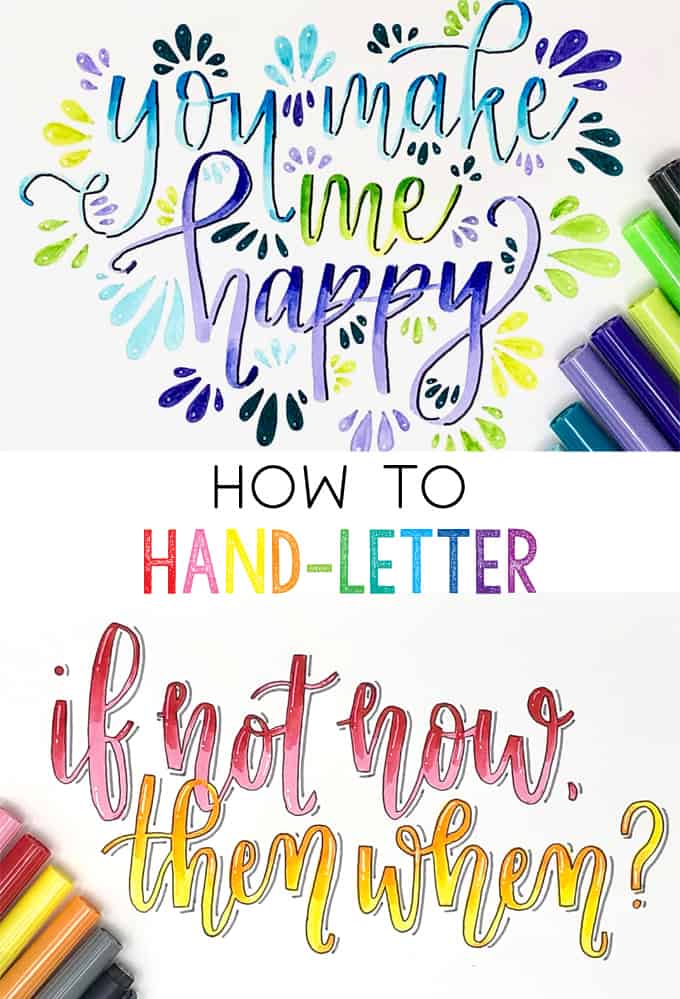 you make
me
happy
HOW TO
HAND-LETTER
if not now,
then when?